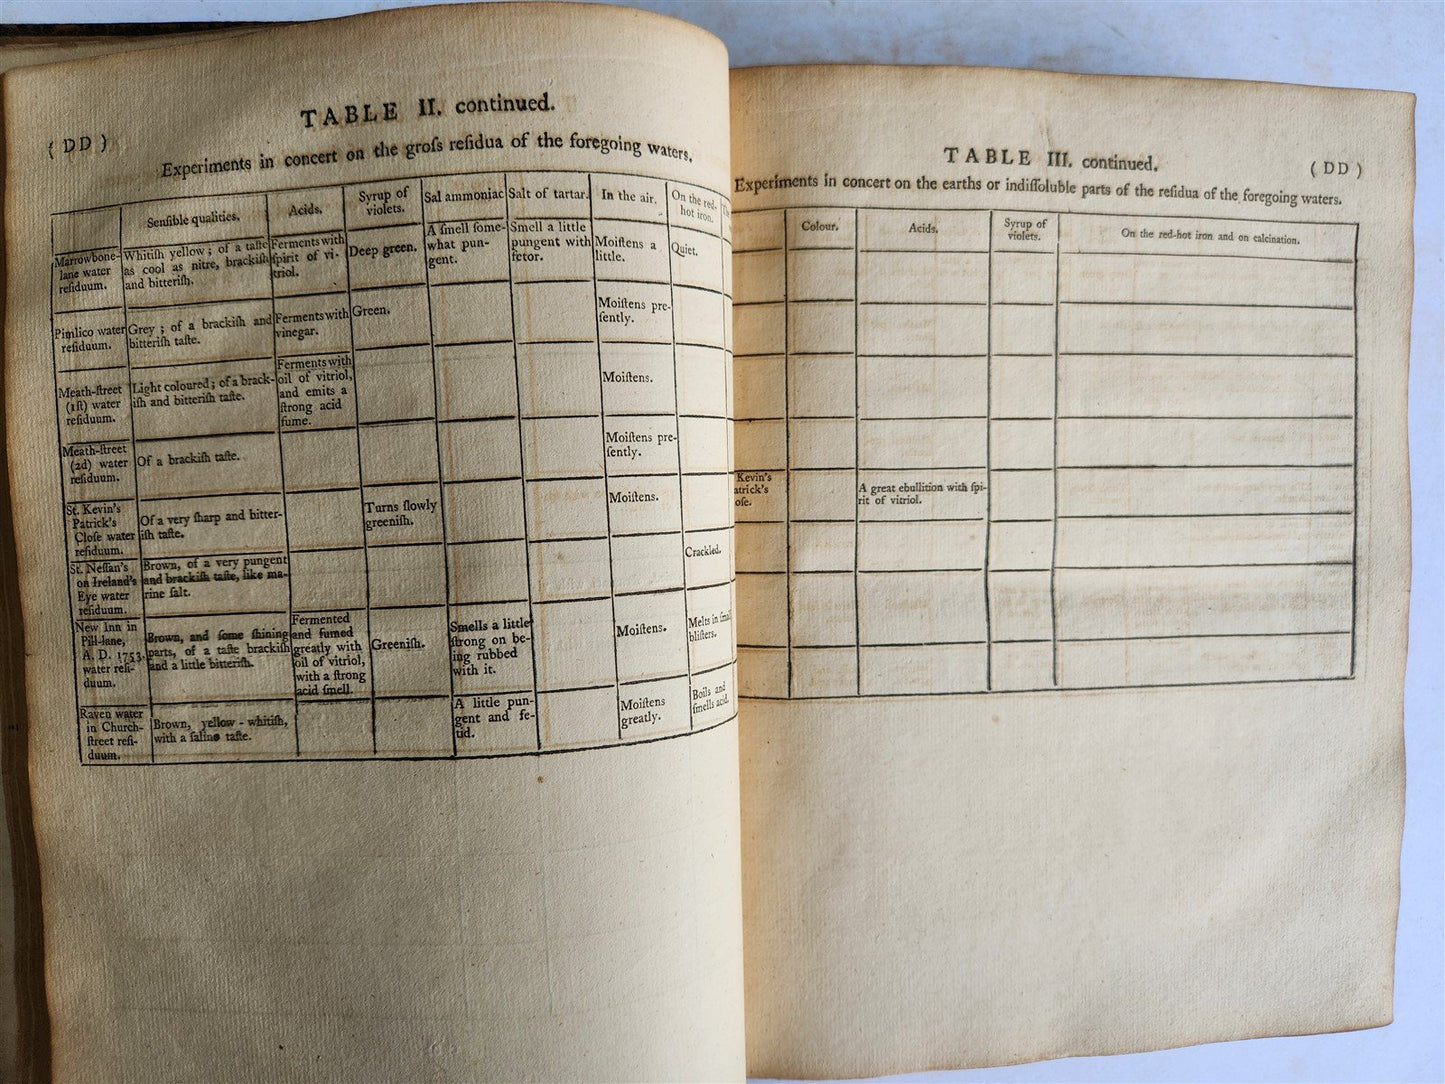 TABLE II. continued.
( DD )
Experiments in concert on the groſs reſidua of the foregoing waters.
Senſible qualities.
Acids.
Syrup of
violets.
Sal ammoniac
Salt of tartar.
In the air.
On the red-
hot iron.
Marrowbone-
lane water
reſiduum.
Whitiſh yellow; of a taſte
as cool as nitre, brackiſh
and bitteriſh.
Ferments with
ſpirit of vi-
triol.
Deep green.
A ſmell ſome-
what pun-
gent.
Smell a little
pungent with
fetor.
Moiſtens a
little.
Quiet.
Pimlico water
reſiduum.
Grey; of a brackiſh and
bitteriſh taſte.
Ferments with
vinegar.
Green.
Moiſtens pre-
ſently.
Meath-ſtreet
(1ſt) water
reſiduum.
Light coloured; of a brack-
iſh and bitteriſh taſte.
Ferments with
oil of vitriol,
and emits a
ſtrong acid
fume.
Moiſtens.
Meath-ſtreet
(2d) water
reſiduum.
Of a brackiſh taſte.
Moiſtens pre-
ſently.
St. Kevin's
Patrick's
Cloſe water
reſiduum.
Of a very ſharp and bitter-
iſh taſte.
Turns ſlowly
greeniſh.
Moiſtens.
St. Neſſan's
on Ireland's
Eye water
reſiduum.
Brown, of a very pungent
and brackiſh taſte, like ma-
rine ſalt.
Crackled.
New Inn in
Pill-lane,
A. D. 1753.
water reſi-
duum.
Brown, and ſome ſhining
parts, of a taſte brackiſh
and a little bitteriſh.
Fermented
and fumed
greatly with
oil of vitriol,
with a ſtrong
acid ſmell.
Greeniſh.
Smells a little
ſtrong on be-
ing rubbed
with it.
Moiſtens.
Melts in ſmall
bliſters.
Raven water
in Church-
ſtreet reſi-
duum.
Brown, yellow-whitiſh,
with a ſaline taſte.
A little pun-
gent and fe-
tid.
Moiſtens
greatly.
Boils and
ſmells acid.
TABLE III. continued.
( DD )
Experiments in concert on the earths or indiſſoluble parts of the reſidua of the foregoing waters.
Colour.
Acids.
Syrup of
violets.
On the red-hot iron and on calcination.
Kevin's
atrick's
oſe.
A great ebullition with ſpi-
rit of vitriol.